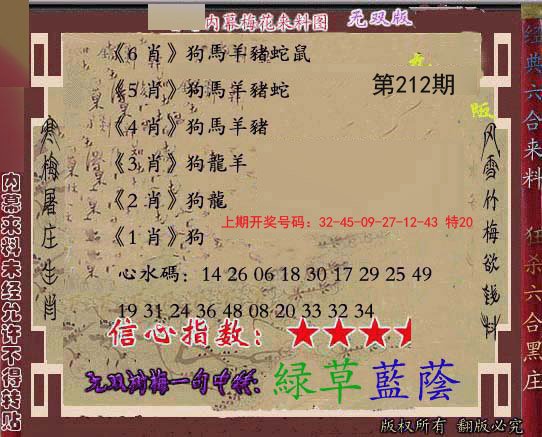 内幕梅花来料图 无双版
《6 肖》狗馬羊豬蛇鼠
《5 肖》狗馬羊豬蛇
第212期
《4 肖》狗馬羊豬
《3 肖》狗龍羊
《2 肖》狗龍
上期开奖号码：32-45-09-27-12-43 特20
《1 肖》狗
心水碼：14 26 06 18 30 17 29 25 49
19 31 24 36 48 08 20 33 32 34
信心指数：
无双梅一句中特：綠草藍蔭
寒梅屠庄生肖
风雪竹梅欲钱料
内幕来料未经允许不得转贴
经典六合来料 狂杀六合黑庄
版权所有 翻版必究